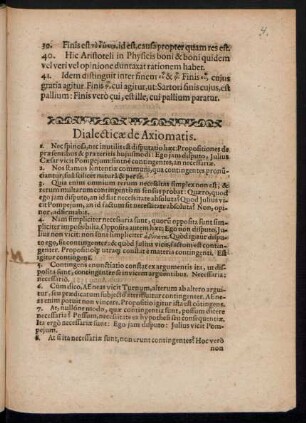 39. Finis est id est, causa propter quam res est.
40. Hic Aristoteli in Physicis boni & boni quidem
vel veri vel opinione duntaxat rationem haber.
41. Idem distinguit inter finem & Finis cujus
gratia agitur Finis cui agitur, ut Sartori finis cujus, est
pallium: Finis verò cui, est ille, cui pallium paratur.
Dialecticæ de Axiomatis.
1. Nec spinosa, nec inutilis disputatio hæc: Propositiones de
præsentibus & præteritis hujusmodi: Ego jam disputo, Julius
Cæsar vicit Pompejum: sintne contingentes, an necessariæ.
2. Nos stamus sententiæ communi, quæ contingentes pronunciat,
3. Quia enim omnium rerum necessitas simplex non est, &
Quæro, quod
ego jam disputo, an id sit necessitate absoluta? Quod Julius vicit
Pompejum, an id factum sit necessitate absoluta? Non,
opinor,
4. Nam simpliciter necessaria sunt, quorum opposita sunt simpliciter
impossibilia. Opposita autem hæc: Ego non disputo, Julius
non vicit: non sunt simpliciter Quòd igitur disputo
ego, sic contingenter: & quòd Julius vicit, factum est contingenter.
Propositio utraq; constat è materia contingenti. Est
igitur contingens.
5. Contingens enunciatio constat ex argumentis
contingenter Necessaria;
necessariò.
6. Cùm dico, Æneas vicit Turnum, alterum ab altero arguitur,
sed prædicatum subjecto inest contingenter. Æneas
enim poterat non vincere. Propositio igitur ista est contingens.
7. At, nullóne modo, quæ contingentes positæ sunt, possunt dicere
necessariæ? Possunt, necessitate ex hypothesi seu consequentiæ.
Ita ergò necessariæ sunt: Ego jam disputo: Julius vicit Pompejum.
8. At si ita necessariæ sunt, non erunt contingentes? Hoc verò
non